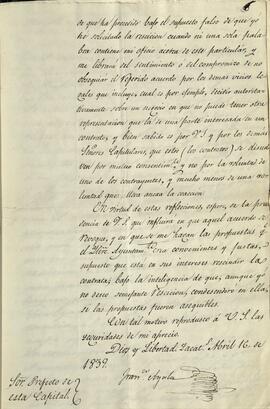 se ha procedido bajo el supuesto falso de que yo
he solicitado la rescicion cuando ni una sola pala
bra contiene mi oficio acerca de este particular, y
me librará del sentimiento ó del compromiso de no
obsequiar el referido acuerdo por los demas vicios le
gales que incluye, cual es por ejemplo, decidir autorita
tivamente sobre un negocio en que no puede tener otra
representacion que la de una parte interesada en un
contrato, y bien sabido es por V.S. y por los demas
Señores Capitulares, que estos (los contratos) se disuel
ven por mutuo consentim.to y no por la voluntad de
uno de los contrayentes, y mucho menos de una
que lleva ansia la
En virtud de estas reflecciones, espero, de la pru
dencia de V.S. que influirá en que aquel acuerdo se
revoque, y en que se me hagan las propuestas q.e
el Ilstre. Ayuntam.to crea convenientes y justas,
supuesto que está en sus intereses rescindir la
contrata; bajo la inteligencia de que, aunque yo
no deseo semejante rescicion, condescenderé en ella,
si las propuestas fueren asequibles.
Con tal motivo reproduzco á V.S. las
seguridades de mi aprecio.
Dios y Libertad. Zacat.s Abril 16. de
1839.
Fran.co
Sor. Prefecto de
esta Capital.